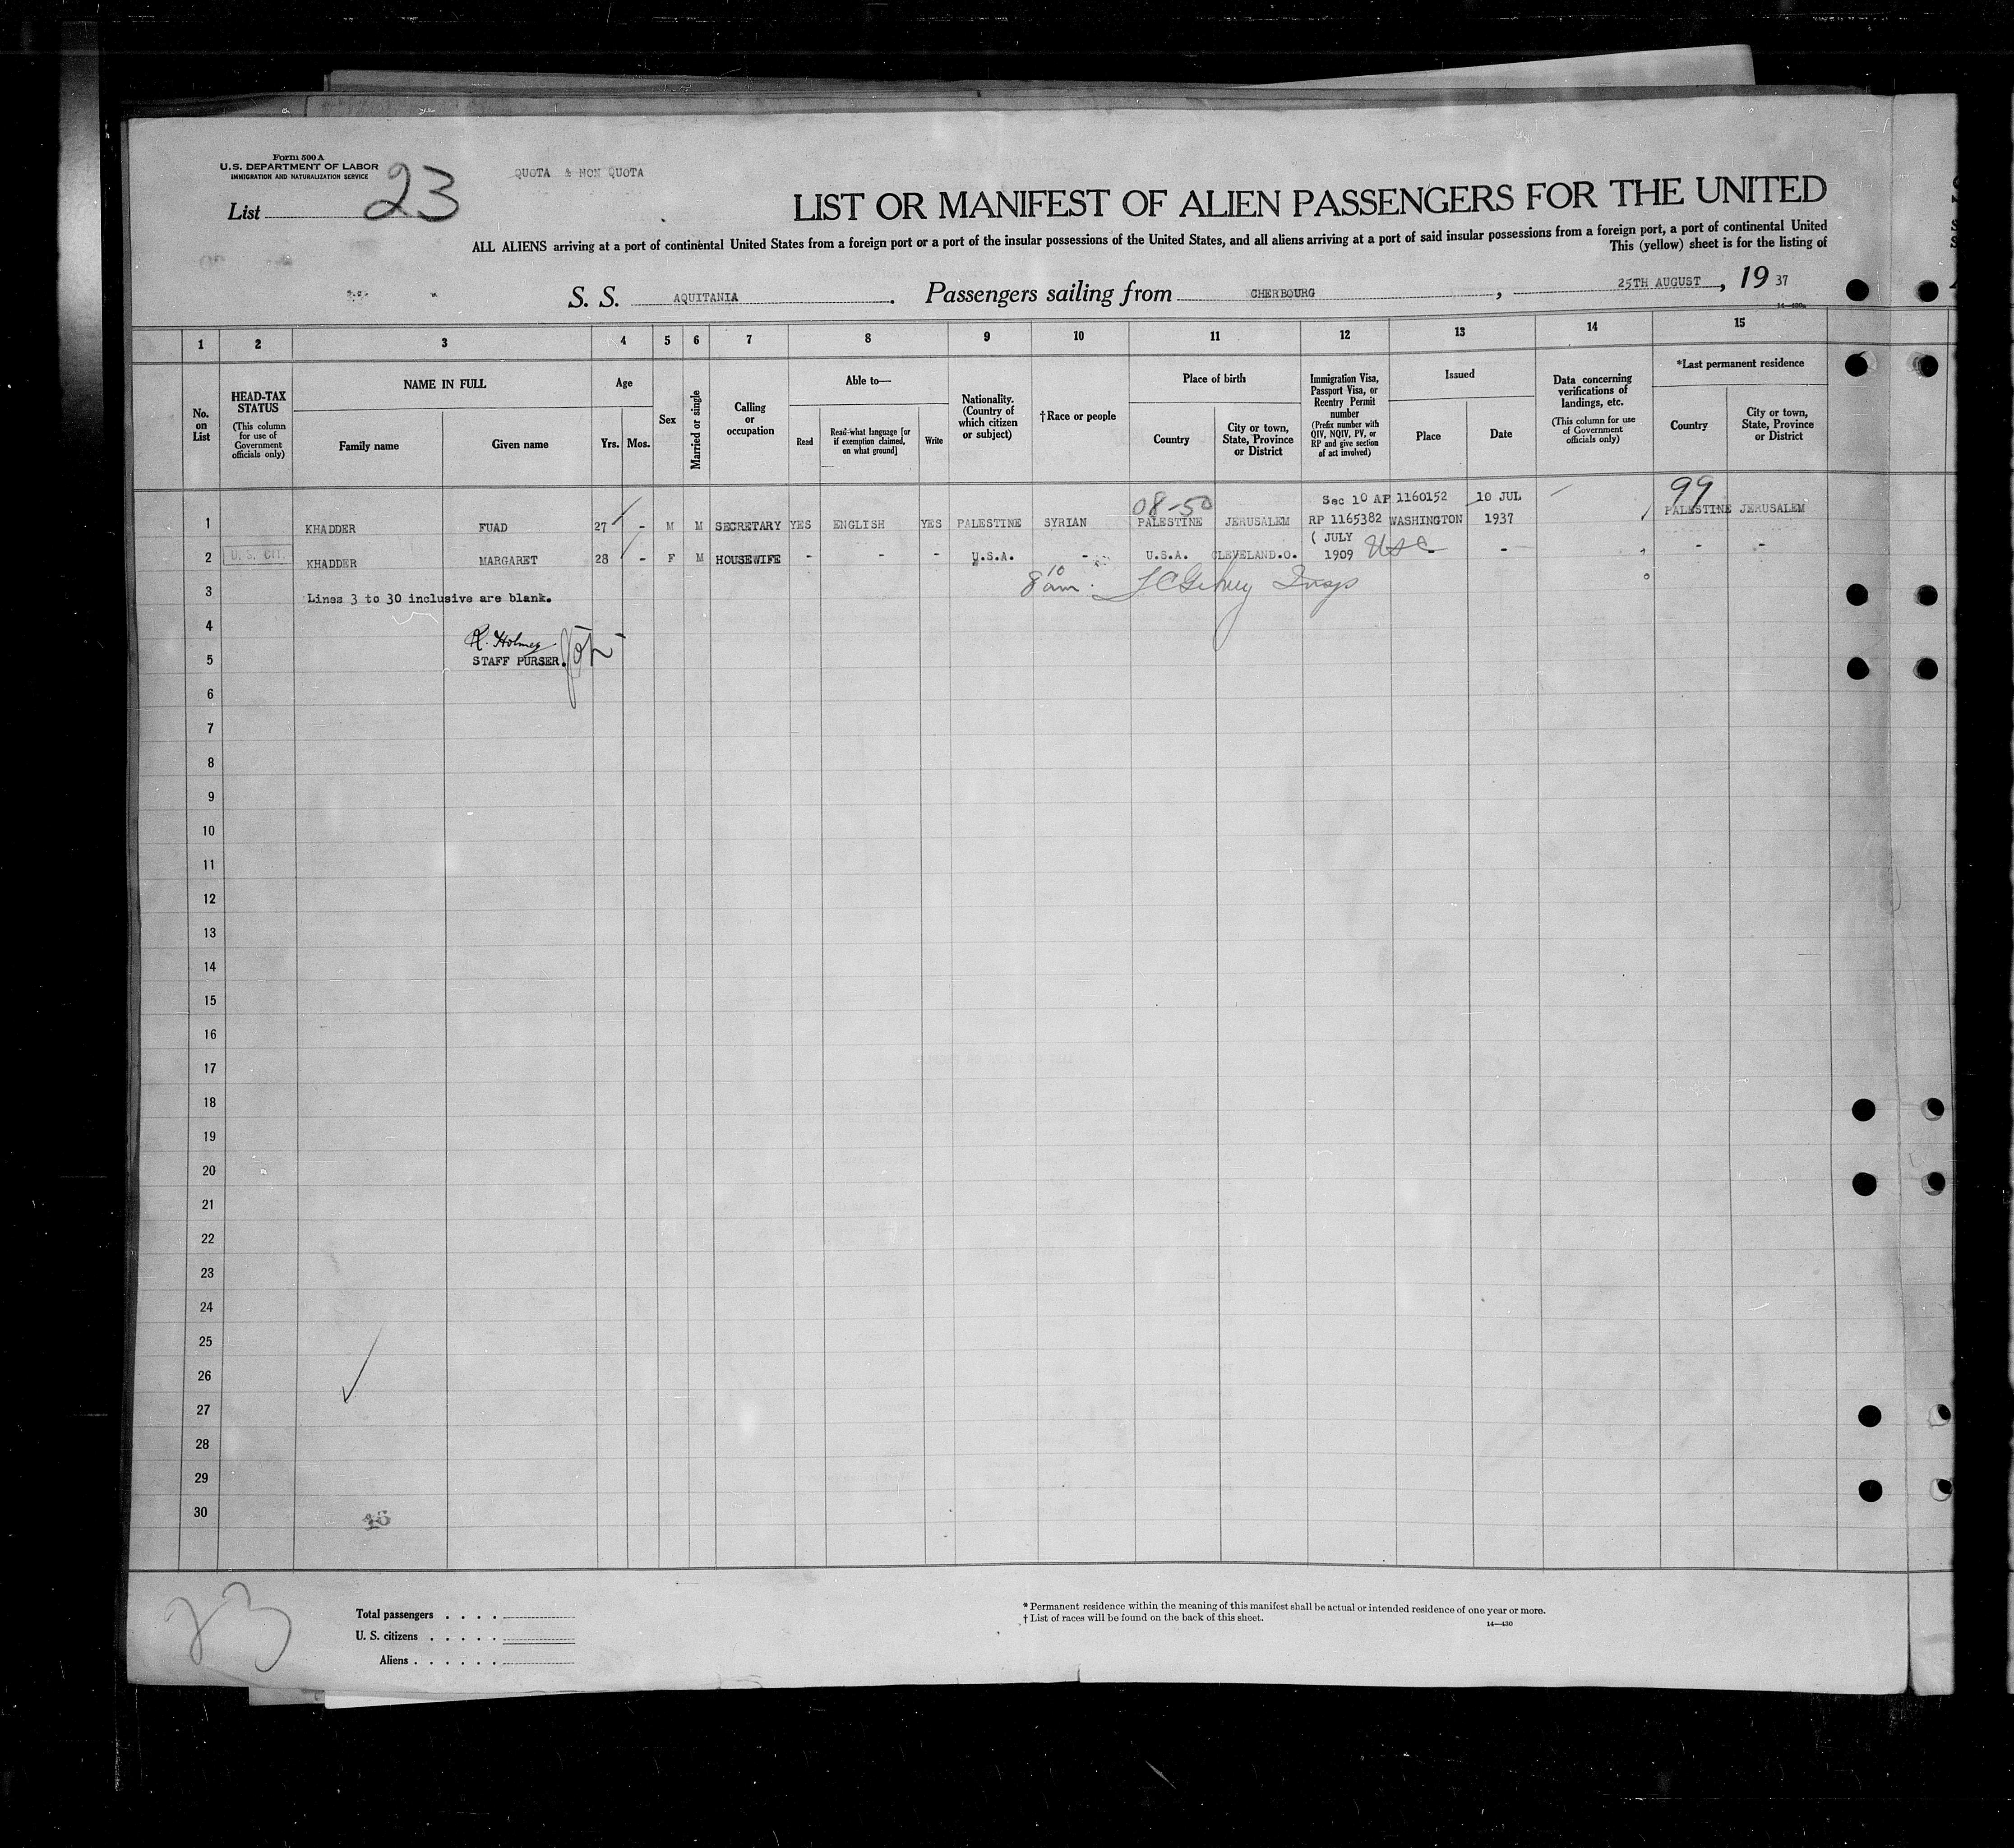 Form 500 A
U.S. DEPARTMENT OF LABOR
IMMIGRATION AND NATURALIZATION SERVICE
List 23
QUOTA & NON QUOTA
LIST OR MANIFEST OF ALIEN PASSENGERS FOR THE UNITED
ALL ALIENS arriving at a port of continental United States from a foreign port or a port of the insular possessions of the United States, and all aliens arriving at a port of said insular possessions from a foreign port, a port of continental United
This (yellow) sheet is for the listing of
S. S. AQUITANIA . Passengers sailing from CHERBOURG , 25TH AUGUST , 19 37
1 2 3 4 5 6 7 8 9 10 11 12 13 14 15
No. on List
HEAD-TAX STATUS (This column for use of Government officials only)
NAME IN FULL
Family name
Given name
Age
Yrs. Mos.
Sex
Married or single
Calling or occupation
Able to—
Read
Read what language [or if exemption claimed, on what ground]
Write
Nationality. (Country of which citizen or subject)
†Race or people
Place of birth
Country
City or town, State, Province or District
Immigration Visa, Passport Visa, or Reentry Permit number (Prefix number with QIV, NQIV, PV, or RP and give section of act involved)
Issued
Place
Date
Data concerning verifications of landings, etc. (This column for use of Government officials only)
*Last permanent residence
Country
City or town, State, Province or District
08-50 Sec 10 AP 1160152 10 JUL 99
1 KHADDER FUAD 27 - M M SECRETARY YES ENGLISH YES PALESTINE SYRIAN PALESTINE JERUSALEM RP 1165382 WASHINGTON 1937 PALESTINE JERUSALEM
2 U. S. CIT. KHADDER MARGARET 28 - F M HOUSEWIFE - - - U.S.A. - U.S.A. CLEVELAND.O. ( JULY 1909 USC - - -
8 10 am
3 Lines 3 to 30 inclusive are blank.
4 R. Holmes
5 STAFF PURSER.
6
7
8
9
10
11
12
13
14
15
16
17
18
19
20
21
22
23
24
25
26
27
28
29
30
23
Total passengers . . . .
U. S. citizens . . . . .
Aliens . . . . . .
* Permanent residence within the meaning of this manifest shall be actual or intended residence of one year or more.
† List of races will be found on the back of this sheet.
14—430